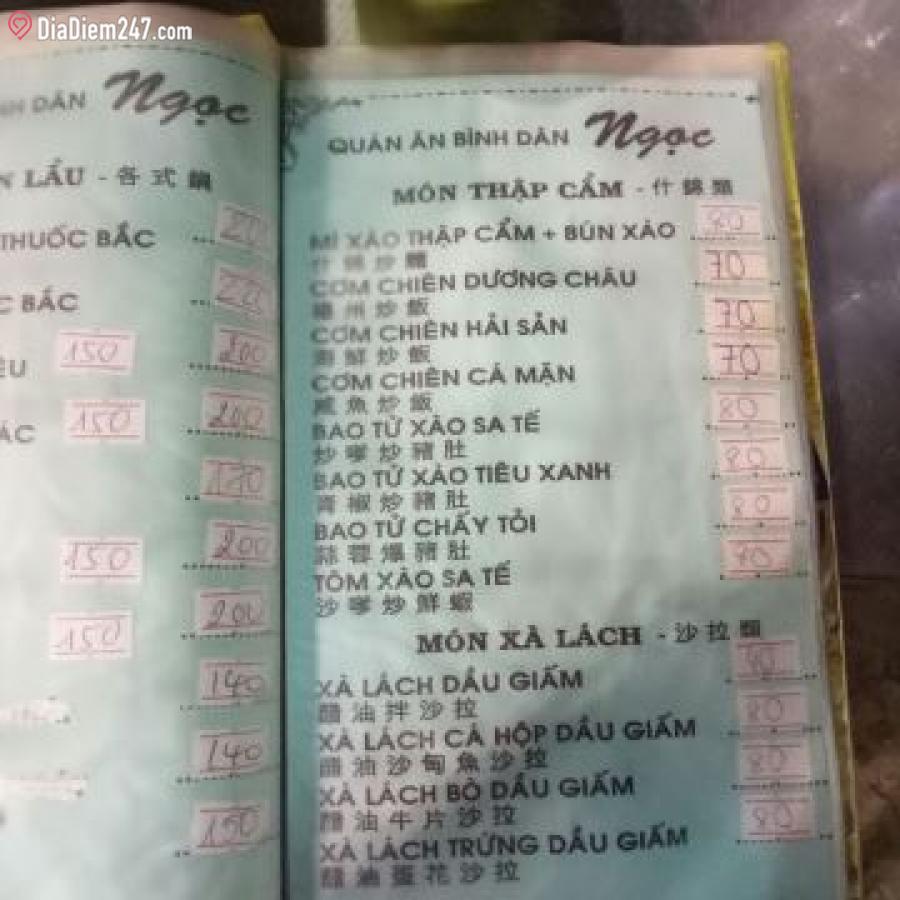 DiaDiem247.com
NH DÂN Ngọc
N LẨU - 各式鍋
THUỐC BẮC ... 220
C BẮC ... 220
ÊU 150 200
ÁC 150 200
170
150 200
150 200
140
140
150
QUÁN ĂN BÌNH DÂN Ngọc
MÓN THẬP CẨM - 什錦類
MÌ XÀO THẬP CẨM + BÚN XÀO 80
什錦炒麵
CƠM CHIÊN DƯƠNG CHÂU 70
楊州炒飯
CƠM CHIÊN HẢI SẢN 70
海鮮炒飯
CƠM CHIÊN CÁ MẶN 70
咸魚炒飯
BAO TỬ XÀO SA TẾ 80
沙嗲炒豬肚
BAO TỬ XÀO TIÊU XANH 80
青椒炒豬肚
BAO TỬ CHÁY TỎI 80
蒜蓉爆豬肚
TÔM XÀO SA TẾ 80
沙嗲炒鮮蝦
MÓN XÀ LÁCH - 沙拉類
XÀ LÁCH DẦU GIẤM 80
醋油拌沙拉
XÀ LÁCH CÁ HỘP DẦU GIẤM 80
醋油沙甸魚沙拉
XÀ LÁCH BÒ DẦU GIẤM 80
醋油牛片沙拉
XÀ LÁCH TRỨNG DẦU GIẤM 80
醋油蛋花沙拉